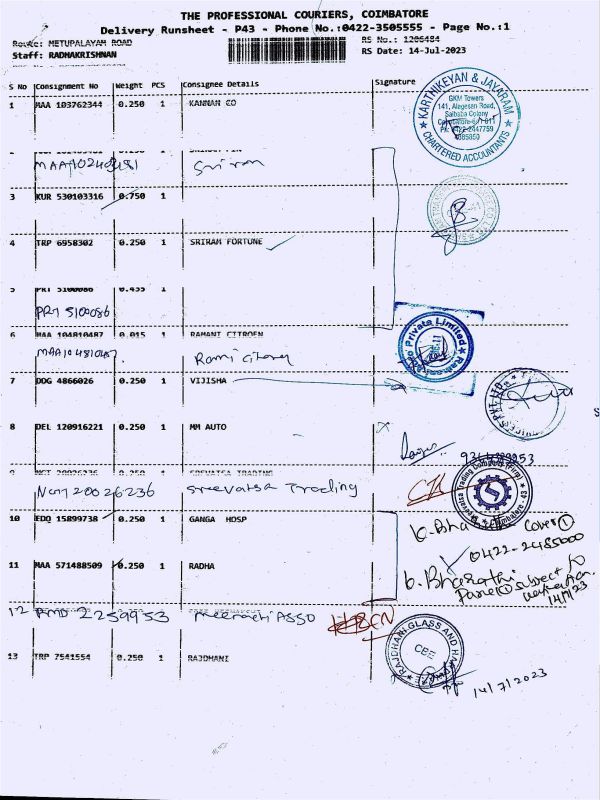 THE PROFESSIONAL COURIERS, COIMBATORE
Delivery Runsheet - P43 - Phone No.:0422-3505555 - Page No.:1
Route: METUPALAYAM ROAD RS No.: 1206484
Staff: RADHAKRISHNAN RS Date: 14-Jul-2023
S No Consignment No Weight PCS Consignee Details Signature
1 MAA 103762344 0.250 1 KANNAN CO
KARTHIKEYAN & JAYARAM
GKM Towers
141, Alagesan Road,
Saibaba Colony
CHARTERED ACCOUNTANTS
3 KUR 530103316 0.750 1
4 TRP 6958302 0.250 1 SRIRAM FORTUNE
5 PRT 5100086 0.455 1
PRT 5100086
6 MAA 104810487 0.015 1 RAMANI CITROEN
MAA104810487
Private Limited
7 DDG 4866026 0.250 1 VIJISHA
8 DEL 120916221 0.250 1 MM AUTO
9 NGT 20026236 0.250 1 SREVATSA TRADING
NGT 20026236 Sreevatsa Trading
10 EDQ 15899738 0.250 1 GANGA HOSP
Cover ①
0422-2485000
11 MAA 571488509 0.250 1 RADHA
b. Bharathi
14/7/23
12 PMD 2259953
13 TRP 7541554 0.250 1 RAJDHANI
RAJDHANI GLASS AND
CBE
14/7/2023